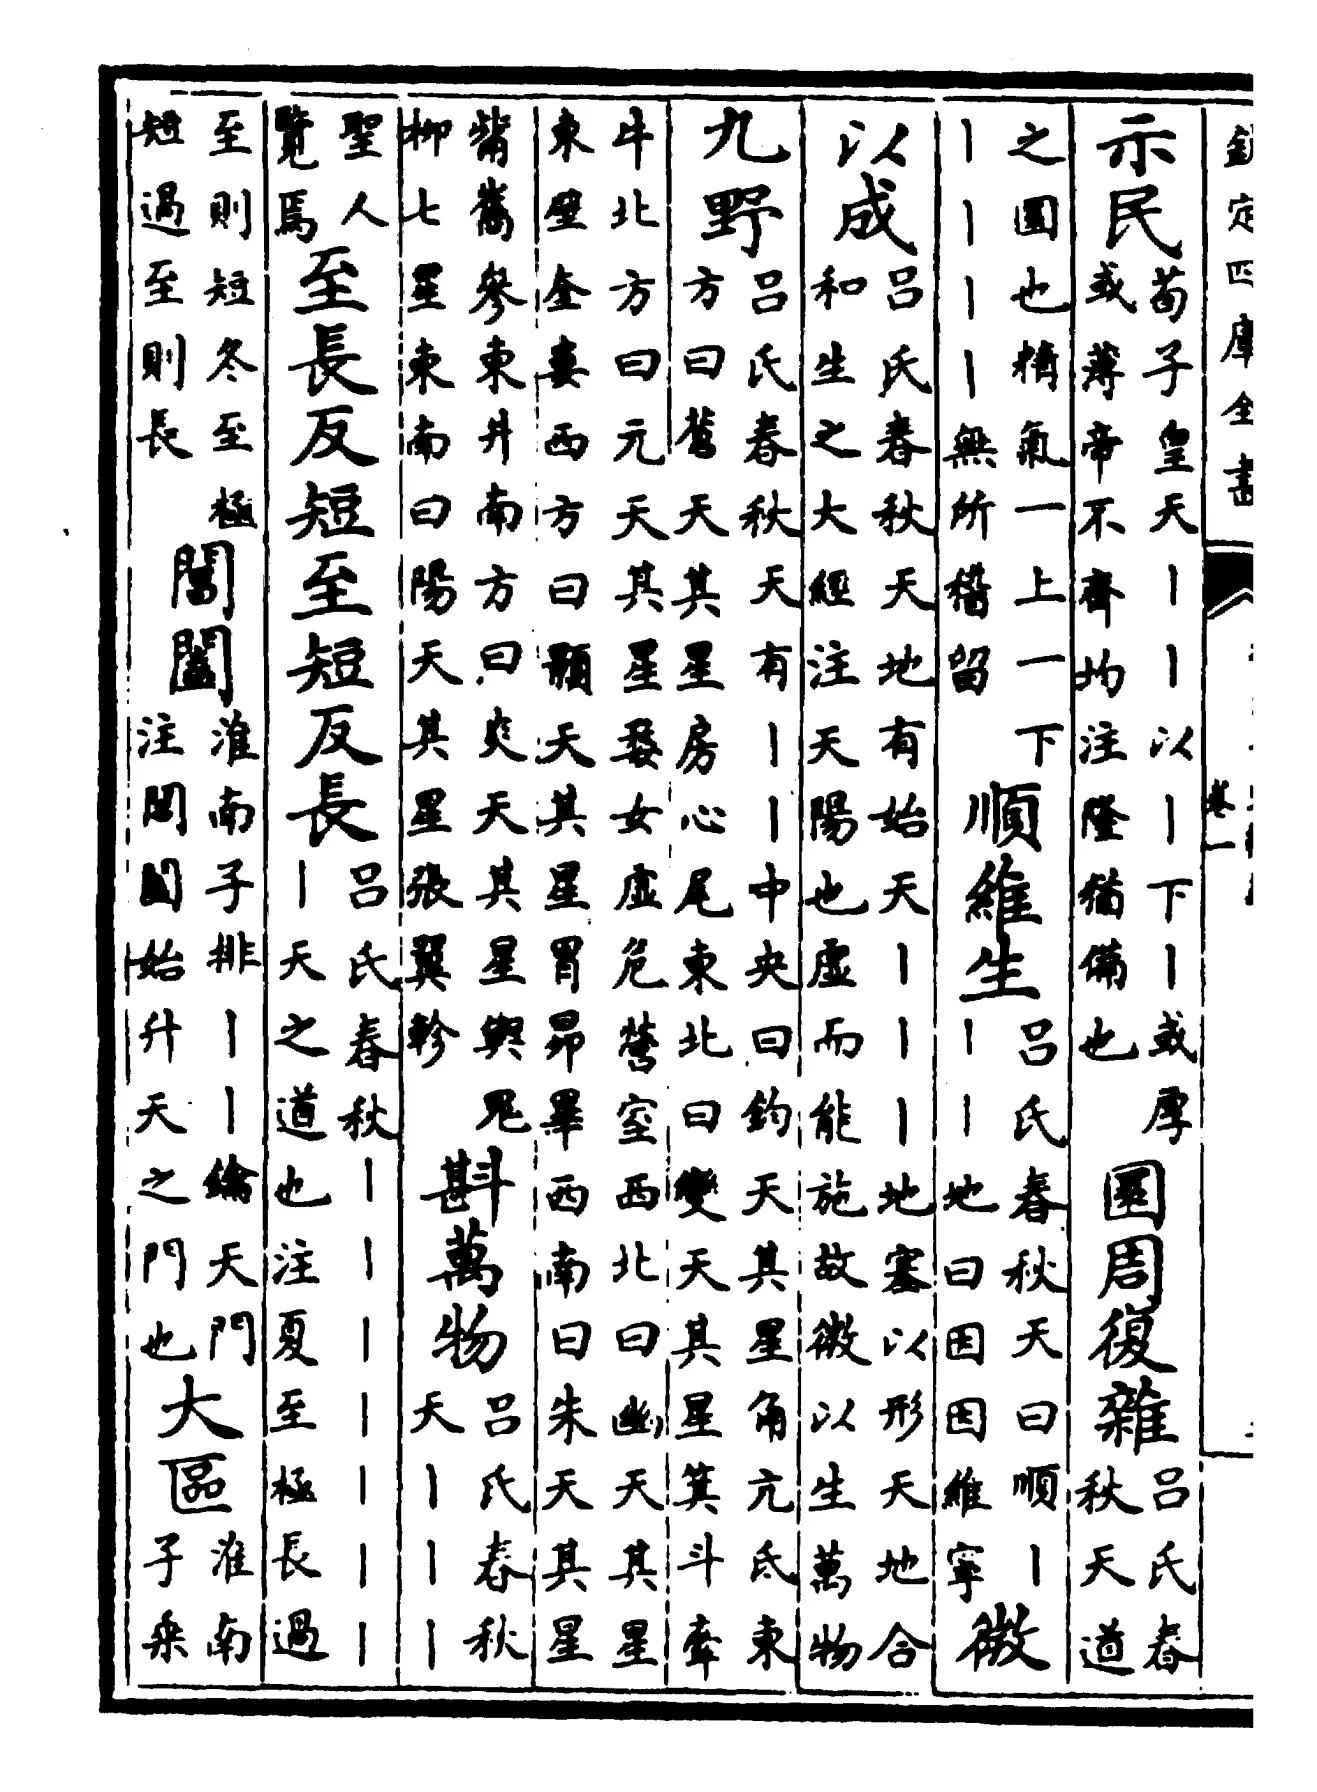 欽定四庫全書
卷一
示民荀子皇天丨丨以丨下丨或厚或薄帝不齊均注隆猶備也圜周復雜呂氏春秋天道
之圜也精氣一上一下丨丨丨丨無所稽留順維生呂氏春秋天曰順丨丨丨地曰固固維寧微
以成呂氏春秋天地有始天丨丨丨地塞以形天地合和生之大經注天陽也虛而能施故微以生萬物
九野呂氏春秋天有丨丨中央曰鈞天其星角亢氐東方曰蒼天其星房心尾東北曰變天其星箕斗牽
牛北方曰元天其星婺女虛危營室西北曰幽天其星東壁奎婁西方曰顥天其星胃昴畢西南曰朱天其星
觜觿參東井南方曰炎天其星輿鬼柳七星東南曰陽天其星張翼軫斟萬物呂氏春秋天丨丨丨
聖人覽焉至長反短至短反長呂氏春秋丨丨丨丨丨丨丨丨天之道也注夏至極長過
至則短冬至極短過至則長閶闔淮南子排丨丨鑰天門注閶闔始升天之門也大區淮南子乘